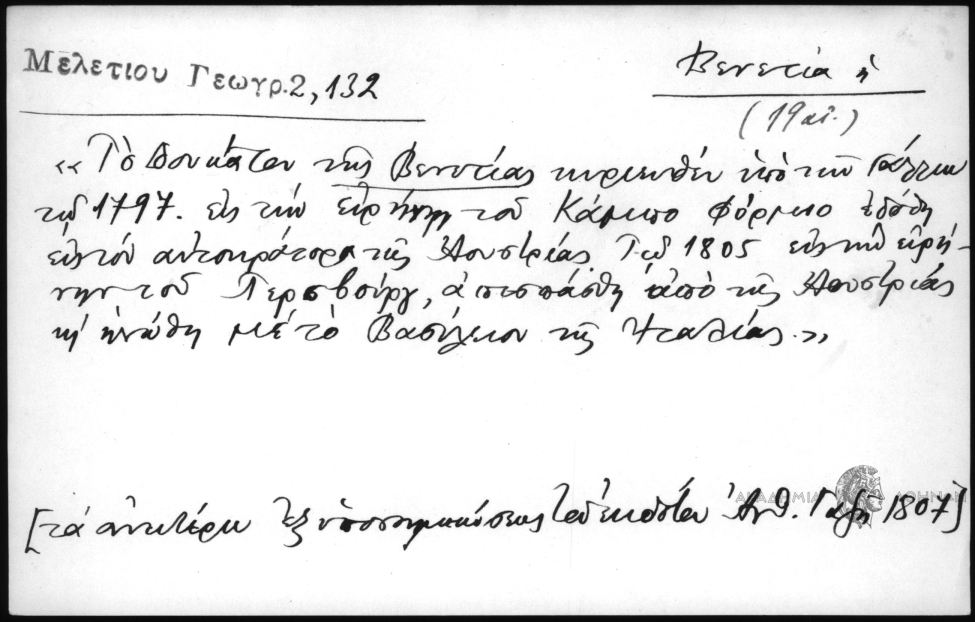 Μελετιου Γεωγρ. 2, 132
Βενετία ἡ
(19 αἰ.)
«Τὸ Δουκᾶτον τῆς Βενετίας κυριευθὲν ὑπὸ τῶν Γάλλων
τῷ 1797. εἰς τὴν εἰρήνην τοῦ Κάμπο Φόρμιο ἐδόθη
εἰς τὸν αὐτοκράτορα τῆς Αουστρίας Τῷ 1805 εἰς τὴν εἰρή-
νην τοῦ Περσβούργ, ἀπεσπάσθη ἀπὸ τῆς Αουστρίας
κ' ἡνώθη μὲ τὸ Βασίλειον τῆς Ἰταλίας.»
ΑΚΑΔΗΜΙΑ ΑΘΗΝΩΝ
[τὰ ἀνωτέρω ἐξ ὑποσημειώσεως τοῦ ἐκδότου Ἀνθ. Γαζῆ 1807]